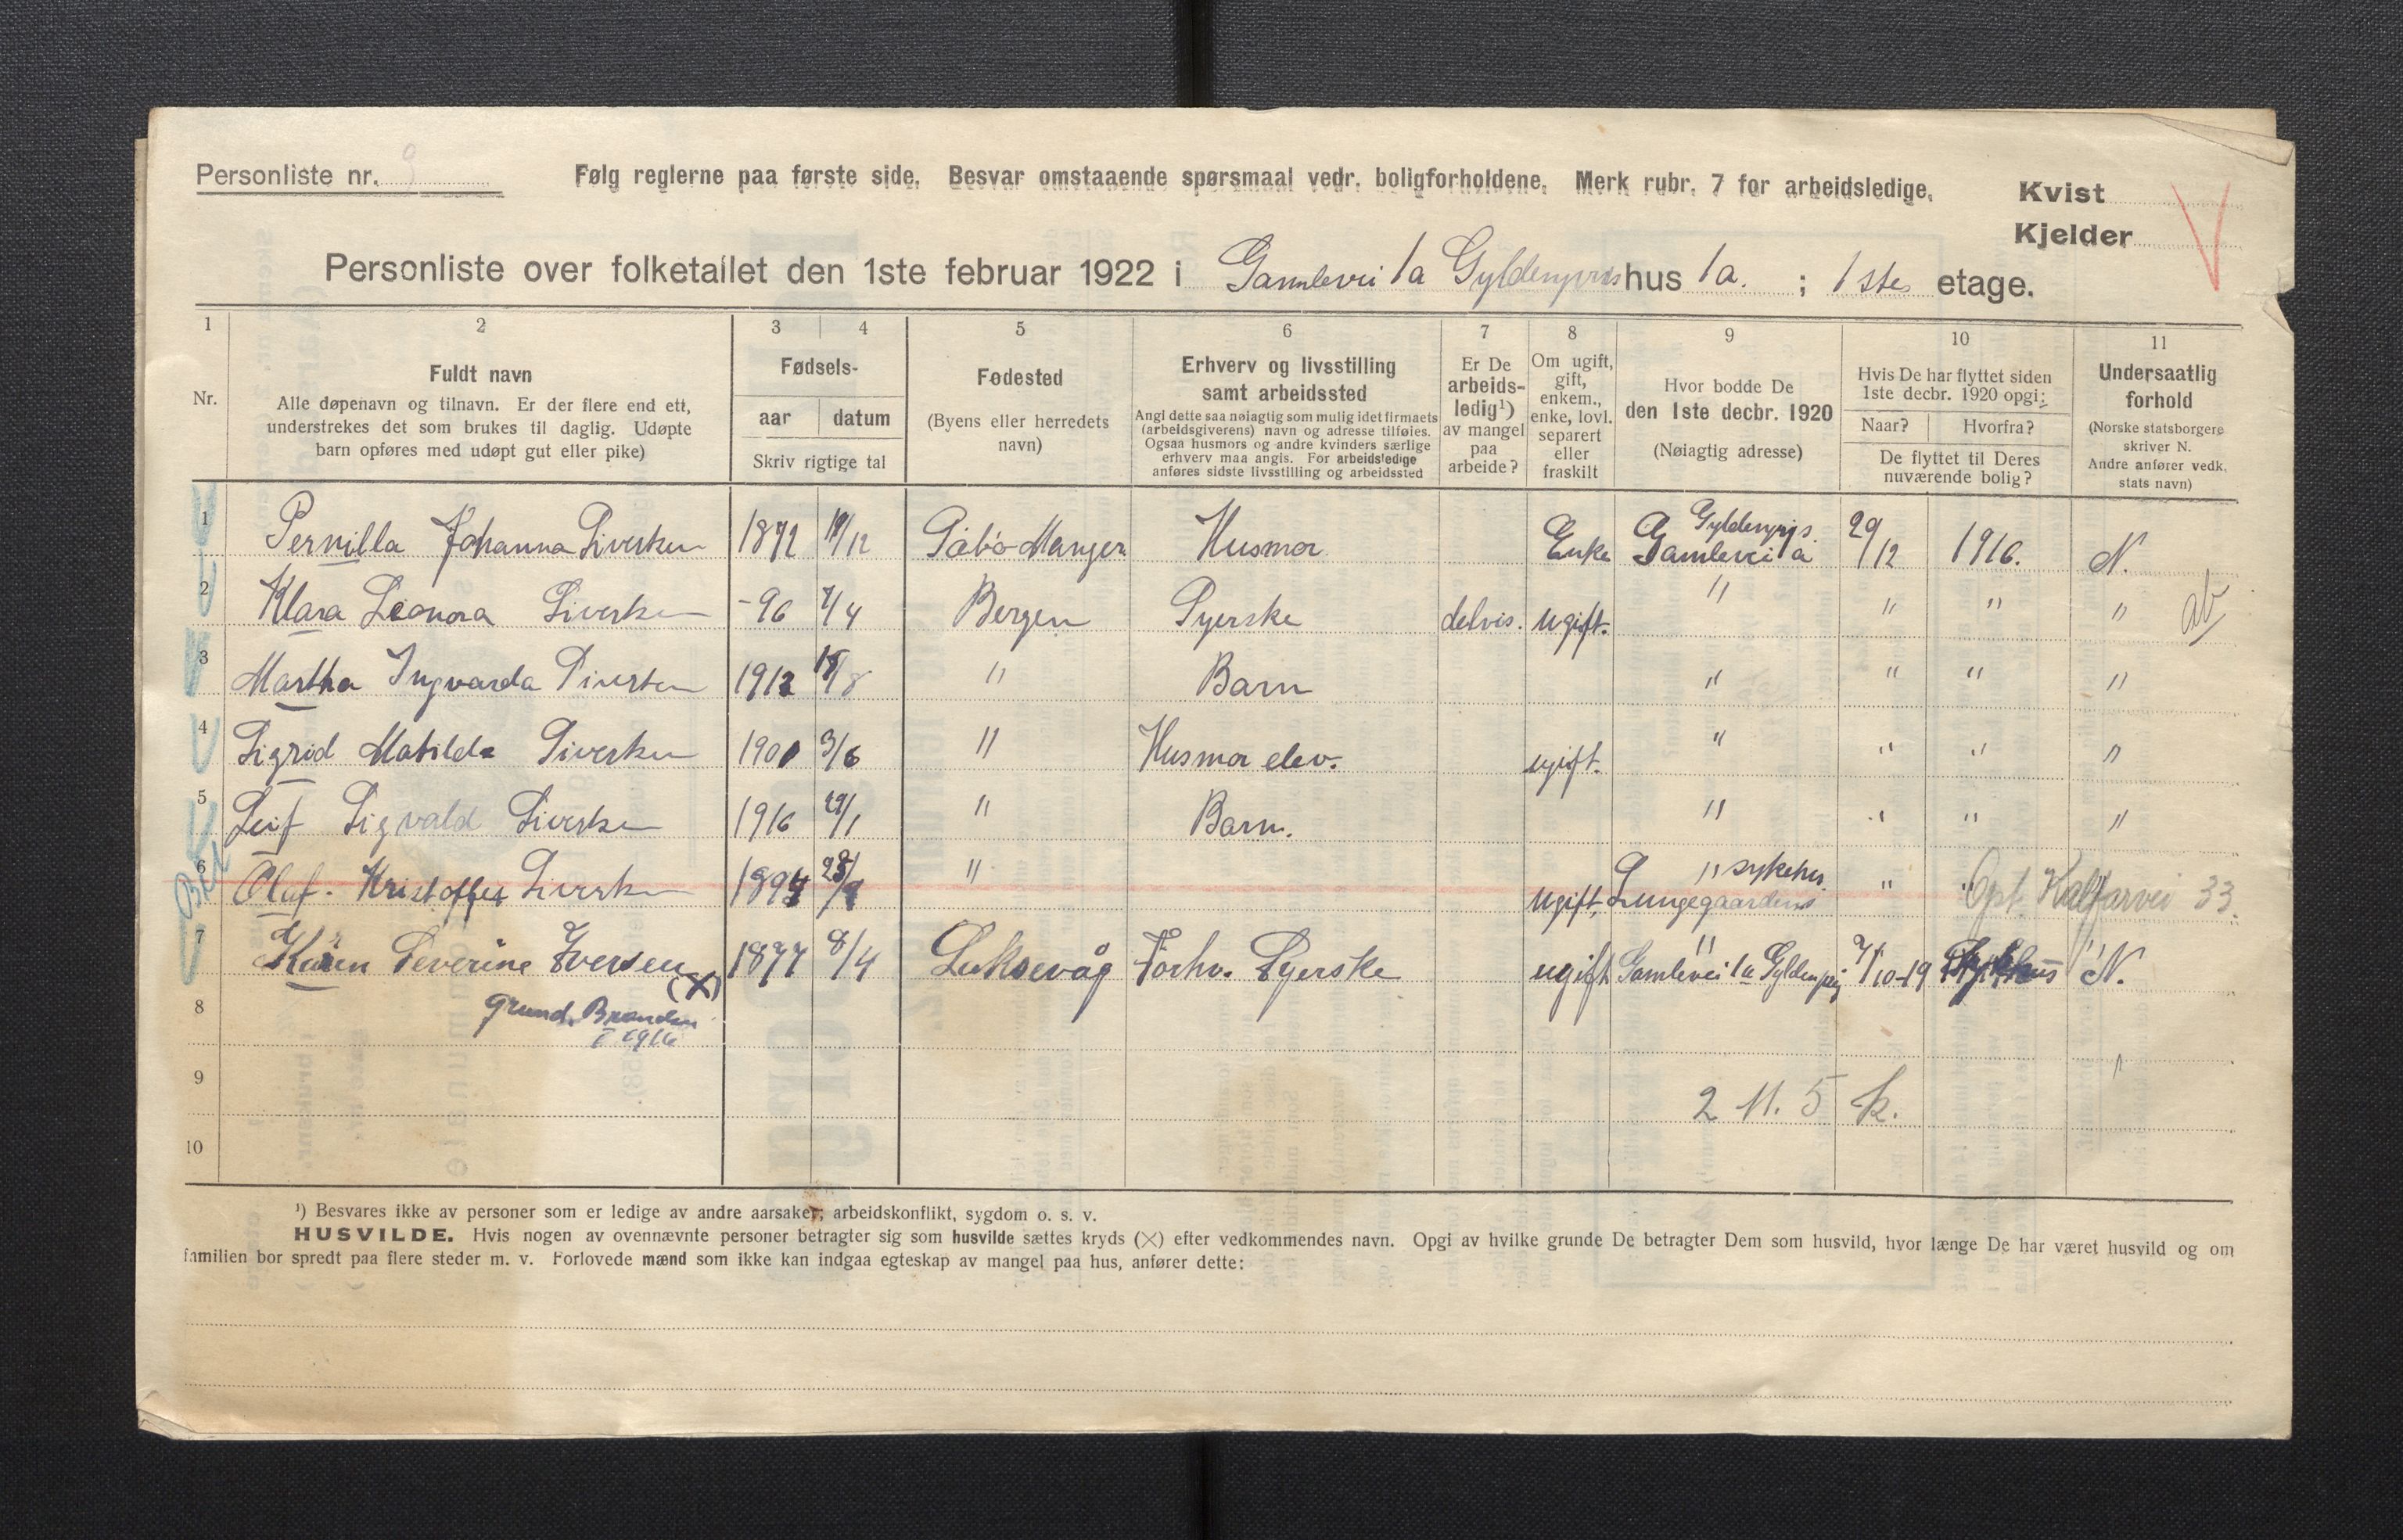 Personliste nr. 9
Følg reglerne paa første side. Besvar omstaaende spørsmaal vedr. boligforholdene. Merk rubr. 7 for arbeidsledige.
Kvist
Kjelder
Personliste over folketallet den 1ste februar 1922 i Gamlevei 1a Gyldenpris hus 1a. ; 1ste etage.
1 2 3 4 5 6 7 8 9 10 11
Nr.
Fuldt navn
Alle døpenavn og tilnavn. Er der flere end ett,
understrekes det som brukes til daglig. Udøpte
barn opføres med udøpt gut eller pike)
Fødsels-
aar datum
Skriv rigtige tal
Fødested
(Byens eller herredets
navn)
Erhverv og livsstilling
samt arbeidssted
Angi dette saa nøiagtig som mulig idet firmaets
(arbeidsgiverens) navn og adresse tilføies.
Ogsaa husmors og andre kvinders særlige
erhverv maa angis. For arbeidsledige
anføres sidste livsstilling og arbeidssted
Er De
arbeids-
ledig¹)
av mangel
paa
arbeide?
Om ugift,
gift,
enkem.,
enke, lovl.
separert
eller
fraskilt
Hvor bodde De
den 1ste decbr. 1920
(Nøiagtig adresse)
Hvis De har flyttet siden
1ste decbr. 1920 opgi:
Naar? Hvorfra?
De flyttet til Deres
nuværende bolig?
Undersaatlig
forhold
(Norske statsborgere
skriver N.
Andre anfører vedk.
stats navn)
1 Pernilla Johanna Siversken 1872 19/12 Manger Husmor Enke Gyldenpris. Gamlevei 1a 29/12 1916. N.
2 Klara Leonora Siversken -96 7/4 Bergen Syerske delvis. ugift. " " " " ab
3 Martha Ingvarda Siversken 1912 18/8 " Barn " " " "
4 Sigrid Matilde Siversken 1901 3/6 " Husmor elev. ugift. " " " "
5 Leif Sigvald Siversken 1916 29/1 " Barn. " " " "
6 Oluf. Kristoffer Siversken 28/9 " ugift. Lungegaardens sykehus. " " Opt. Kalfarvei 33.
7 Karen Severine Iversen (X) 1877 8/4 Laksevåg Forhv. Syerske ugift Gamlevei 1a Gyldenpris 9/10-19 N.
8 grund. Branden
1916
9
2 M. 5 K.
10
¹) Besvares ikke av personer som er ledige av andre aarsaker; arbeidskonflikt, sygdom o. s. v.
HUSVILDE. Hvis nogen av ovennævnte personer betragter sig som husvilde sættes kryds (X) efter vedkommendes navn. Opgi av hvilke grunde De betragter Dem som husvild, hvor længe De har været husvild og om
familien bor spredt paa flere steder m. v. Forlovede mænd som ikke kan indgaa egteskap av mangel paa hus, anfører dette: